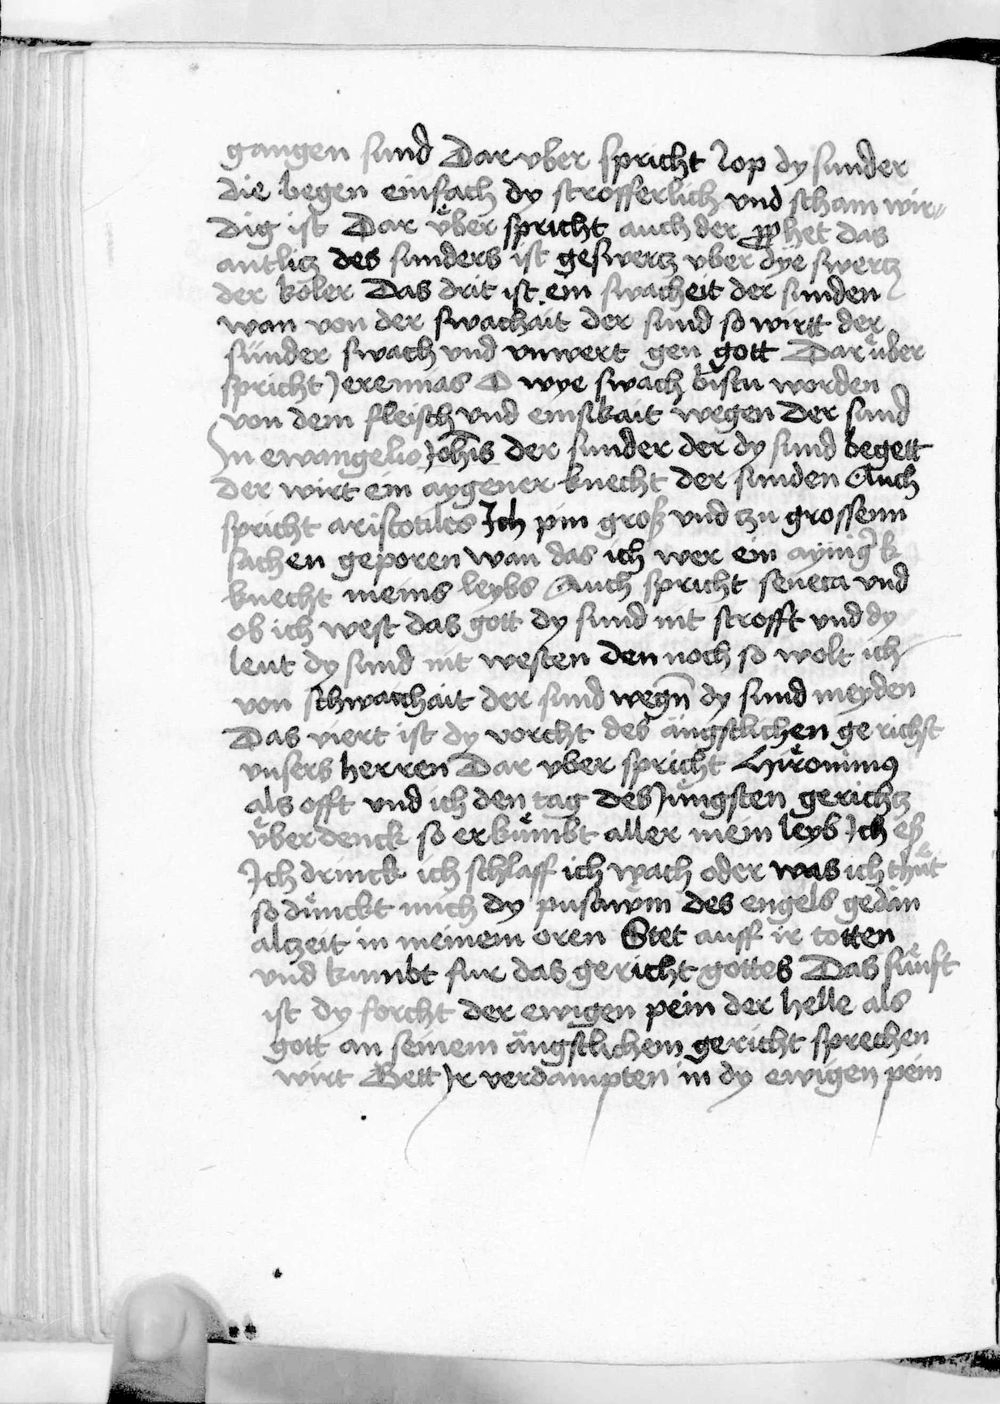 gangen sund Dar vber spricht Jop dy sunder
die begen einfach dy strofferlich vnd scham wir=
dig ist Dar vͤber spricht auch der prophet das
antlicz des sunders ist geswercz vber dye swercz
der koler Das drit ist ein swacheit der sunden
wan von der swachait der sund so wirtt der
sünder swach vnd vnwert gen gott Dar vͤber
spricht Jeremias O wye swach bistu worden
von dem fleisch vnd einsikait wegen Der sund
In ewangelio Joh̄is der sunder der dy sund begett
der wirt ein aygener knecht der sunden Auch
spricht aristotiles Ich pin groß vnd czu grossenn
sachen geporen wan das ich wer ein
knecht meins leybs Auch spricht seneca vnd
ob ich west das gott dy sund nit strofft vnd dy
leut dy sund nit westen den noch so wolt ich
von schwachait der sund wegn̄ dy sund meyden
Das viert ist dy vorcht des ängstlichen gericht
vnsers herren Dar vber spricht Hieronimus
als offt vnd ich den tag des Jüngsten gerichcz
vͤber denck so erkümbt aller mein leyb Ich eß
Ich drinck ich schlaff ich wach oder was ich thut
so dünckt mich dy pusawm des engels gedän
alczeit in meinem oren Stet auff ir totten
vnd kumbt fur das gericht gottes Das fünft
ist dy forcht der ewigen pein der helle als
gott an seinem ängstlichem gericht sprechen
wirt Gett Jr verdampten in dy ewigen pein